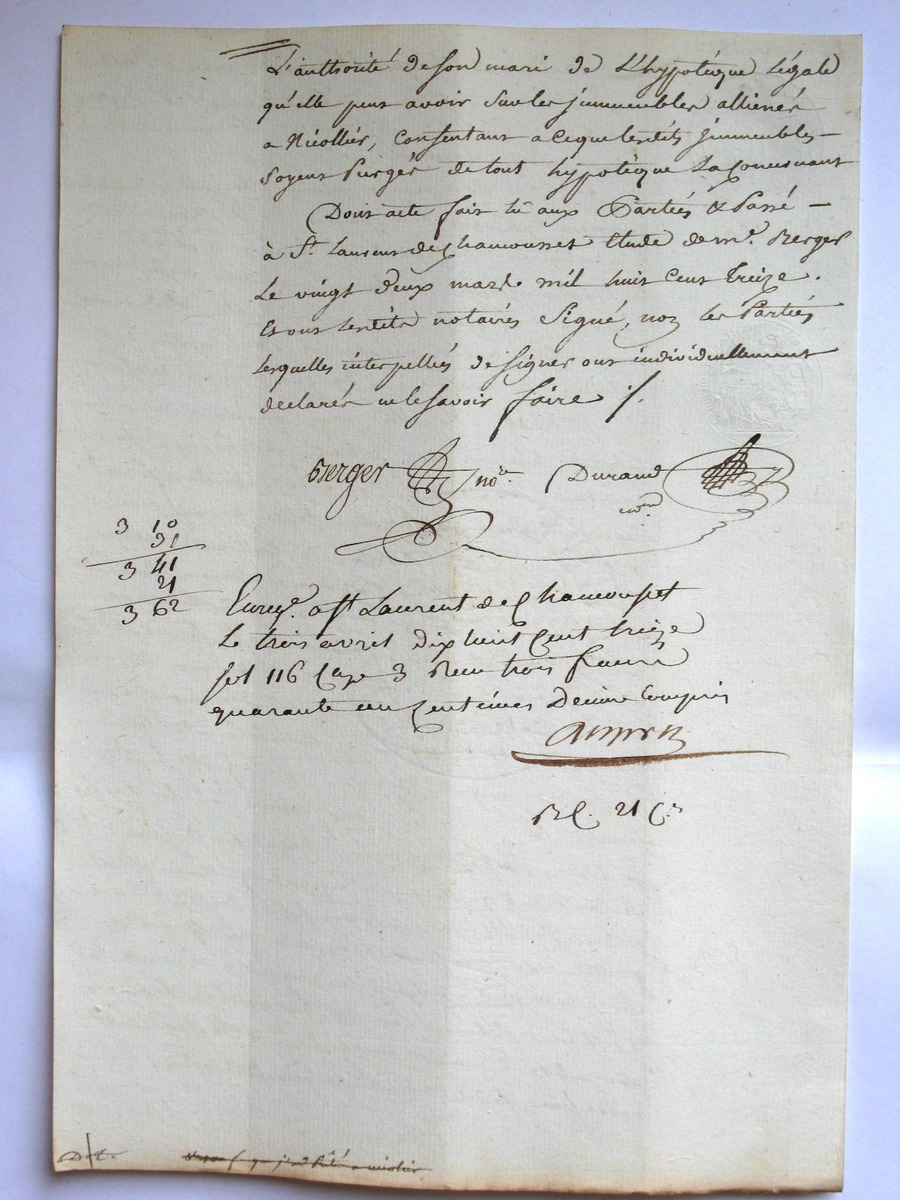 L'authorité de son mari de L'hypotèque Légale
qu'elle peut avoir sur les jmmeubles alliénés
a Nicollier, Consentant a ceque lesdits jmmeubles -
Soyent Purgés de tout hypotèque La Concernant
Dont acte fait lû aux Parties & Passé -
à St. Laurent de Chamousset Etude de me. Berger
Le vingt deux mars mil huit Cent Treize.
Et ont lesdits notaires Signé, non les Parties
Lesquelles interpellées de Signer ont individuellement
declarés ne le Savoir faire ./.
Berger nore. Durand
3 10
31
3 41
21
3 62
Enregé. a st Laurent de Chamousset
Le trois avril dix huit Cent treize
fol 116 Case 3 Recu trois francs
quarante un Centimes Décime Compris
21 Cs